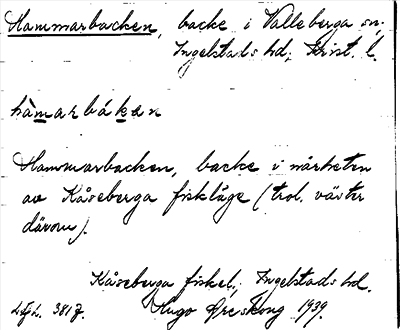 Hammarbacken, backe i Valleberga sn,
Ingelstads hd, Krist. l.
hàmarbákan
Hammarbacken, backe i närheten
av Kåseberga fiskläge (trol. väster
därom).
Kåseberga fiskel., Ingelstads hd.
Hugo Areskoug 1939.